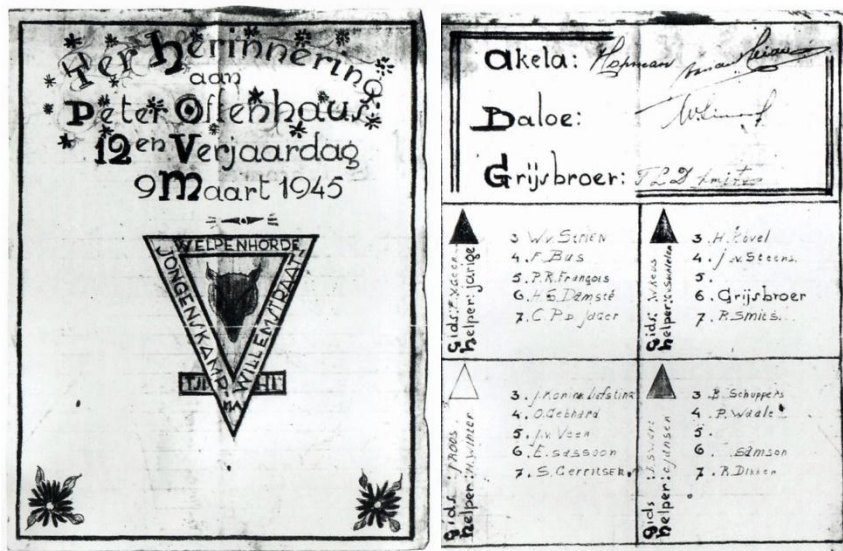 Ter herinnering
aan
Peter Oltenhaus'
12en Verjaardag
9 Maart 1945
WELPENHORDE
JONGENSKAMP
WILLEMSTRAAT
TJI
Akela: Hopman
Baloe:
Grijsbroer: T L D Smits
Gids:
helper: jarige
3 W.v. Strien
4. F. Bus
5. P.R. François
6. H.S. Damsté
7. C.P.D. Jager
Gids:
helper:
3. H. Kovel
4. J.v. Steens
5.
6. Grijsbroer
7. R. Smits
Gids: J Roos
helper: N. Winter
3. J. Konink Liefsting
4. O. Gebhard
5. J.v. Veen
6. E. Sassoon
7. S. Gerritsen
Gids:
helper: C. Jansen
3 B. Schuppers
4. P. Waale
5.
6. Samson
7. R. Dikken